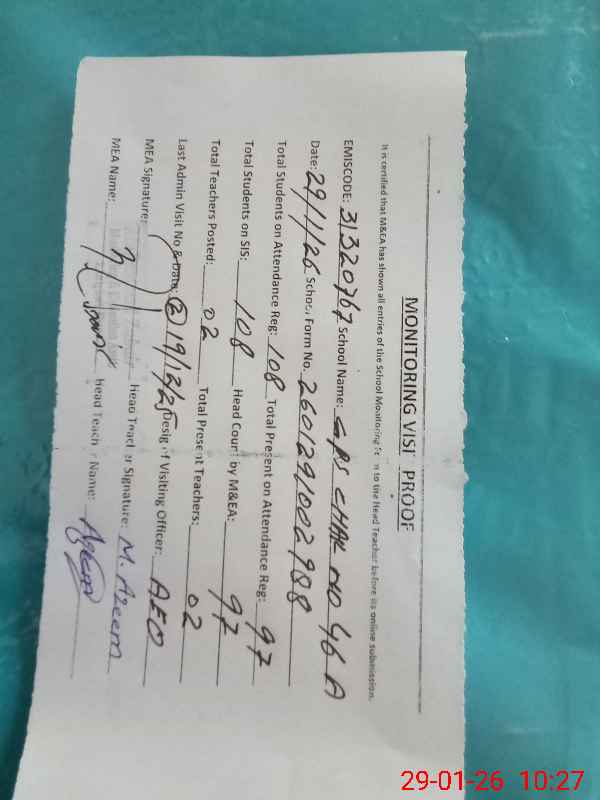 MONITORING VISIT PROOF
It is certified that M&EA has shown all entries of the School Monitoring Form to the Head Teacher before its online submission.
EMISCODE: 31320767 School Name: GPS CHAK NO 46 A
Date: 29/1/26 School Form No. 2601291002988
Total Students on Attendance Reg: 108 Total Present on Attendance Reg: 97
Total Students on SIS: 108 Head Count by M&EA: 97
Total Teachers Posted: 02 Total Present Teachers: 02
Last Admin Visit No & Date: 2 19/12/25 Desig of Visiting Officer: AEO
MEA Signature: Head Teacher Signature: M. Azeem
MEA Name: Head Teacher Name: Azeem
29-01-26 10:27